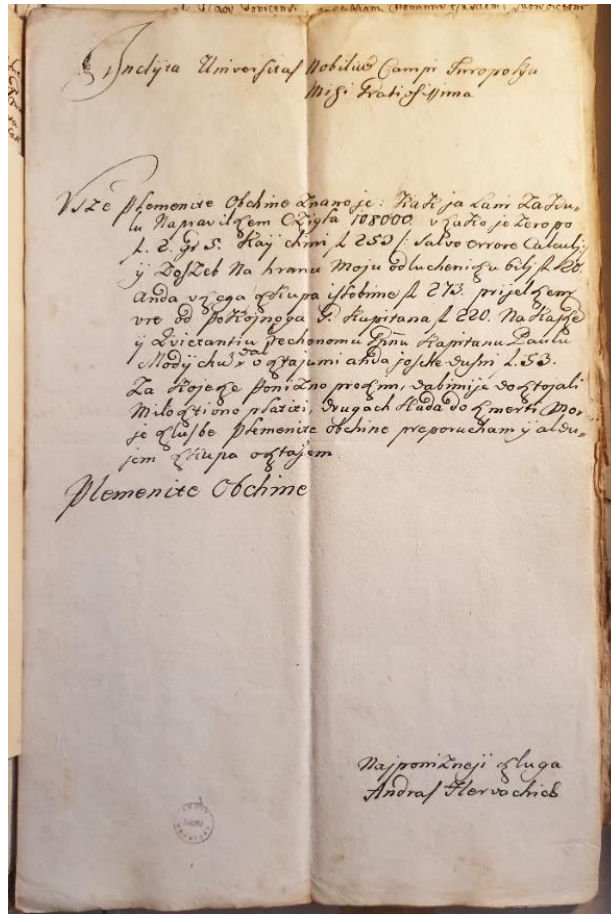 Inclyta Universitas Nobilium Campi Turopolya
Mihi Gratiosissima
Vsze Plemenite Obchine znano je: Kak ja Lani Za Szu„
lu Napravil szem Czigla 108000. vszako je zero po
f. 2. gr 5. Kaj chini f 253 /: Salvo errore Calculi :/
y Doszeb Na hranu Moju odluchenih bilj f 20.
Anda vszega szkupa iszhodi mi f 273. prijel szem
vre od pokojnoga G. Kapitana f 220. Na
y Qvietantiu Gdnu Kapitanu Paulu
Modichu, osztajumi anda joscte dusni f. 53.
Za Koje sze ponizno proszim, da bi mi je dosztojali
Milosztivno platiti, drugach Kada do szmerti Mo„
je szlusbe Plemenite obchine preporucham y aldu„
jem szkupa osztajem
Plemenite Obchine
Najponizneji szluga
Andras Hervachich